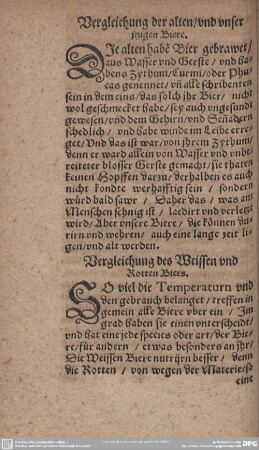 Vergleichung der alten/vnd vnser
jtzigen Biere.
DJe alten habẽ Bier gebrawet/
aus Wasser vnd Gerste / vnd ha-
bens Zythum/Curmi/oder Phu-
cas genennet/vñ alle schribenten
sein in dem eins/das solch jhr Bier/ nicht
wol geschmecket habe/sey auch vngesundt
gewesen/vnd dem Gehirn/vnd Señadern
schedlich / vnd habe winde im Leibe erre-
get/Vnd das ist war/von jhrem Zythum/
denn er ward allein von Wasser vnd vnbe-
reiteter blosser Gerste gemacht/sie thaten
keinen Hopffen darzu/derhalben es auch
nicht kondte werhafftig sein / sondern
würd bald sawr / Daher das / was am
Menschen sehnig ist / laedirt vnd verletzt
wird/Aber vnsere Biere / die können du-
rirn vnd wehren/ auch eine lange zeit li-
gen/vnd alt werden.
Vergleichung des Weissen vnd
Rotten Biers.
SO viel die Temperaturn vnd
den gebrauch belanget/treffen in
gemein alle Biere vber ein / Jm
grad haben sie einen vnterscheidt/
vnd hat eine jede species oder art/der Bie-
re/für andern / etwas besonders an jhr/
Die Weissen Biere nutrirn besser/ denn
die Rotten / von wegen der Materie/so
eine